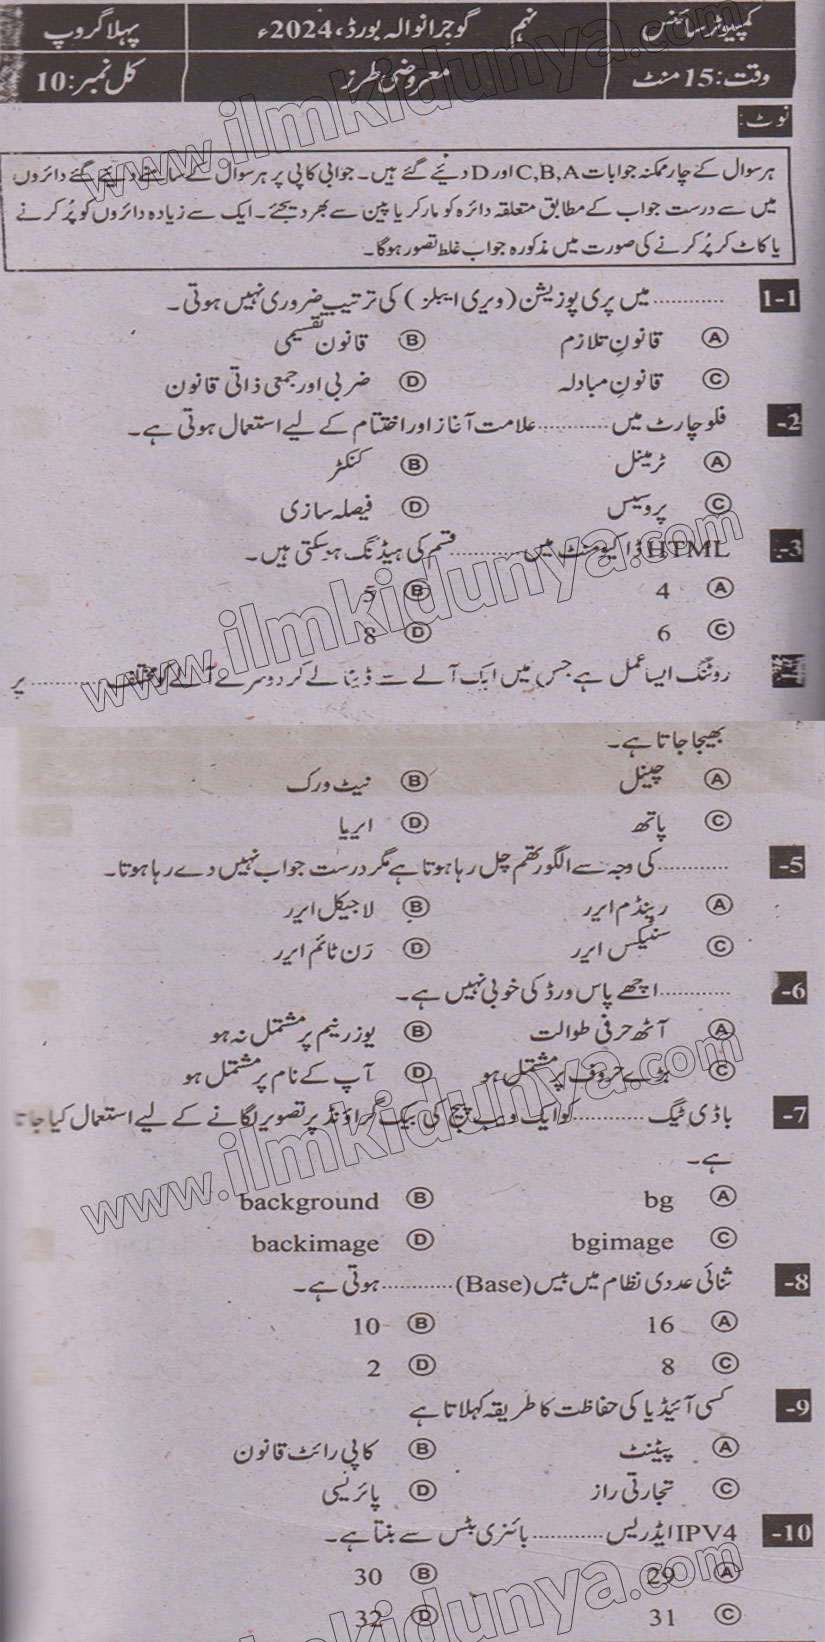 کمپیوٹر سائنس نہم گوجرانوالہ بورڈ، 2024ء پہلا گروپ
وقت: 15 منٹ معروضی طرز کل نمبر: 10
نوٹ:
ہر سوال کے چار ممکنہ جوابات C,B,A اور D دئیے گئے ہیں۔ جوابی کاپی پر ہر سوال کے سامنے دئیے گئے دائروں
میں سے درست جواب کے مطابق متعلقہ دائرہ کو مارکر یا پین سے بھر دیجئے۔ ایک سے زیادہ دائروں کو پُر کرنے
یا کاٹ کر پُر کرنے کی صورت میں مذکورہ جواب غلط تصور ہوگا۔
1-1 ............ میں پری پوزیشن (ویری ایبلز) کی ترتیب ضروری نہیں ہوتی۔
Ⓐ قانونِ تلازم Ⓑ قانون تقسیمی
Ⓒ قانونِ مبادلہ Ⓓ ضربی اور جمعی ذاتی قانون
2- فلوچارٹ میں ............ علامت آغاز اور اختتام کے لیے استعمال ہوتی ہے۔
Ⓐ ٹرمینل Ⓑ کنکٹر
Ⓒ پروسیس Ⓓ فیصلہ سازی
3- HTML ڈاکیومنٹ میں ............ قسم کی ہیڈنگ ہوسکتی ہیں۔
Ⓐ 4 Ⓑ 5
Ⓒ 6 Ⓓ 8
روٹنگ ایسا عمل ہے جس میں ایک آلے سے ڈیٹا لے کر دوسرے آلے کو مختلف ............ پر
بھیجا جاتا ہے۔
Ⓐ چینل Ⓑ نیٹ ورک
Ⓒ پاتھ Ⓓ ایریا
5- ............ کی وجہ سے الگورتھم چل رہا ہوتا ہے مگر درست جواب نہیں دے رہا ہوتا۔
Ⓐ رینڈم ایرر Ⓑ لاجیکل ایرر
Ⓒ سنٹیکس ایرر Ⓓ رَن ٹائم ایرر
6- ............ اچھے پاس ورڈ کی خوبی نہیں ہے۔
Ⓐ آٹھ حرفی طوالت Ⓑ یوزر نیم پر مشتمل نہ ہو
Ⓒ بڑے حروف پر مشتمل ہو Ⓓ آپ کے نام پر مشتمل ہو
7- باڈی ٹیگ ............ کو ایک ویب پیج کی بیک گراؤنڈ پر تصویر لگانے کے لیے استعمال کیا جاتا
ہے۔
Ⓐ bg Ⓑ background
Ⓒ bgimage Ⓓ backimage
8- ثنائی عددی نظام میں بیس (Base) ............ ہوتی ہے۔
Ⓐ 16 Ⓑ 10
Ⓒ 8 Ⓓ 2
9- کسی آئیڈیا کی حفاظت کا طریقہ کہلاتا ہے
Ⓐ پیٹنٹ Ⓑ کاپی رائٹ قانون
Ⓒ تجارتی راز Ⓓ پائریسی
10- IPV4 ایڈریس ............ بائنری بٹس سے بنتا ہے۔
Ⓐ 29 Ⓑ 30
Ⓒ 31 Ⓓ 32
www.ilmkidunya.com
www.ilmkidunya.com
www.ilmkidunya.com